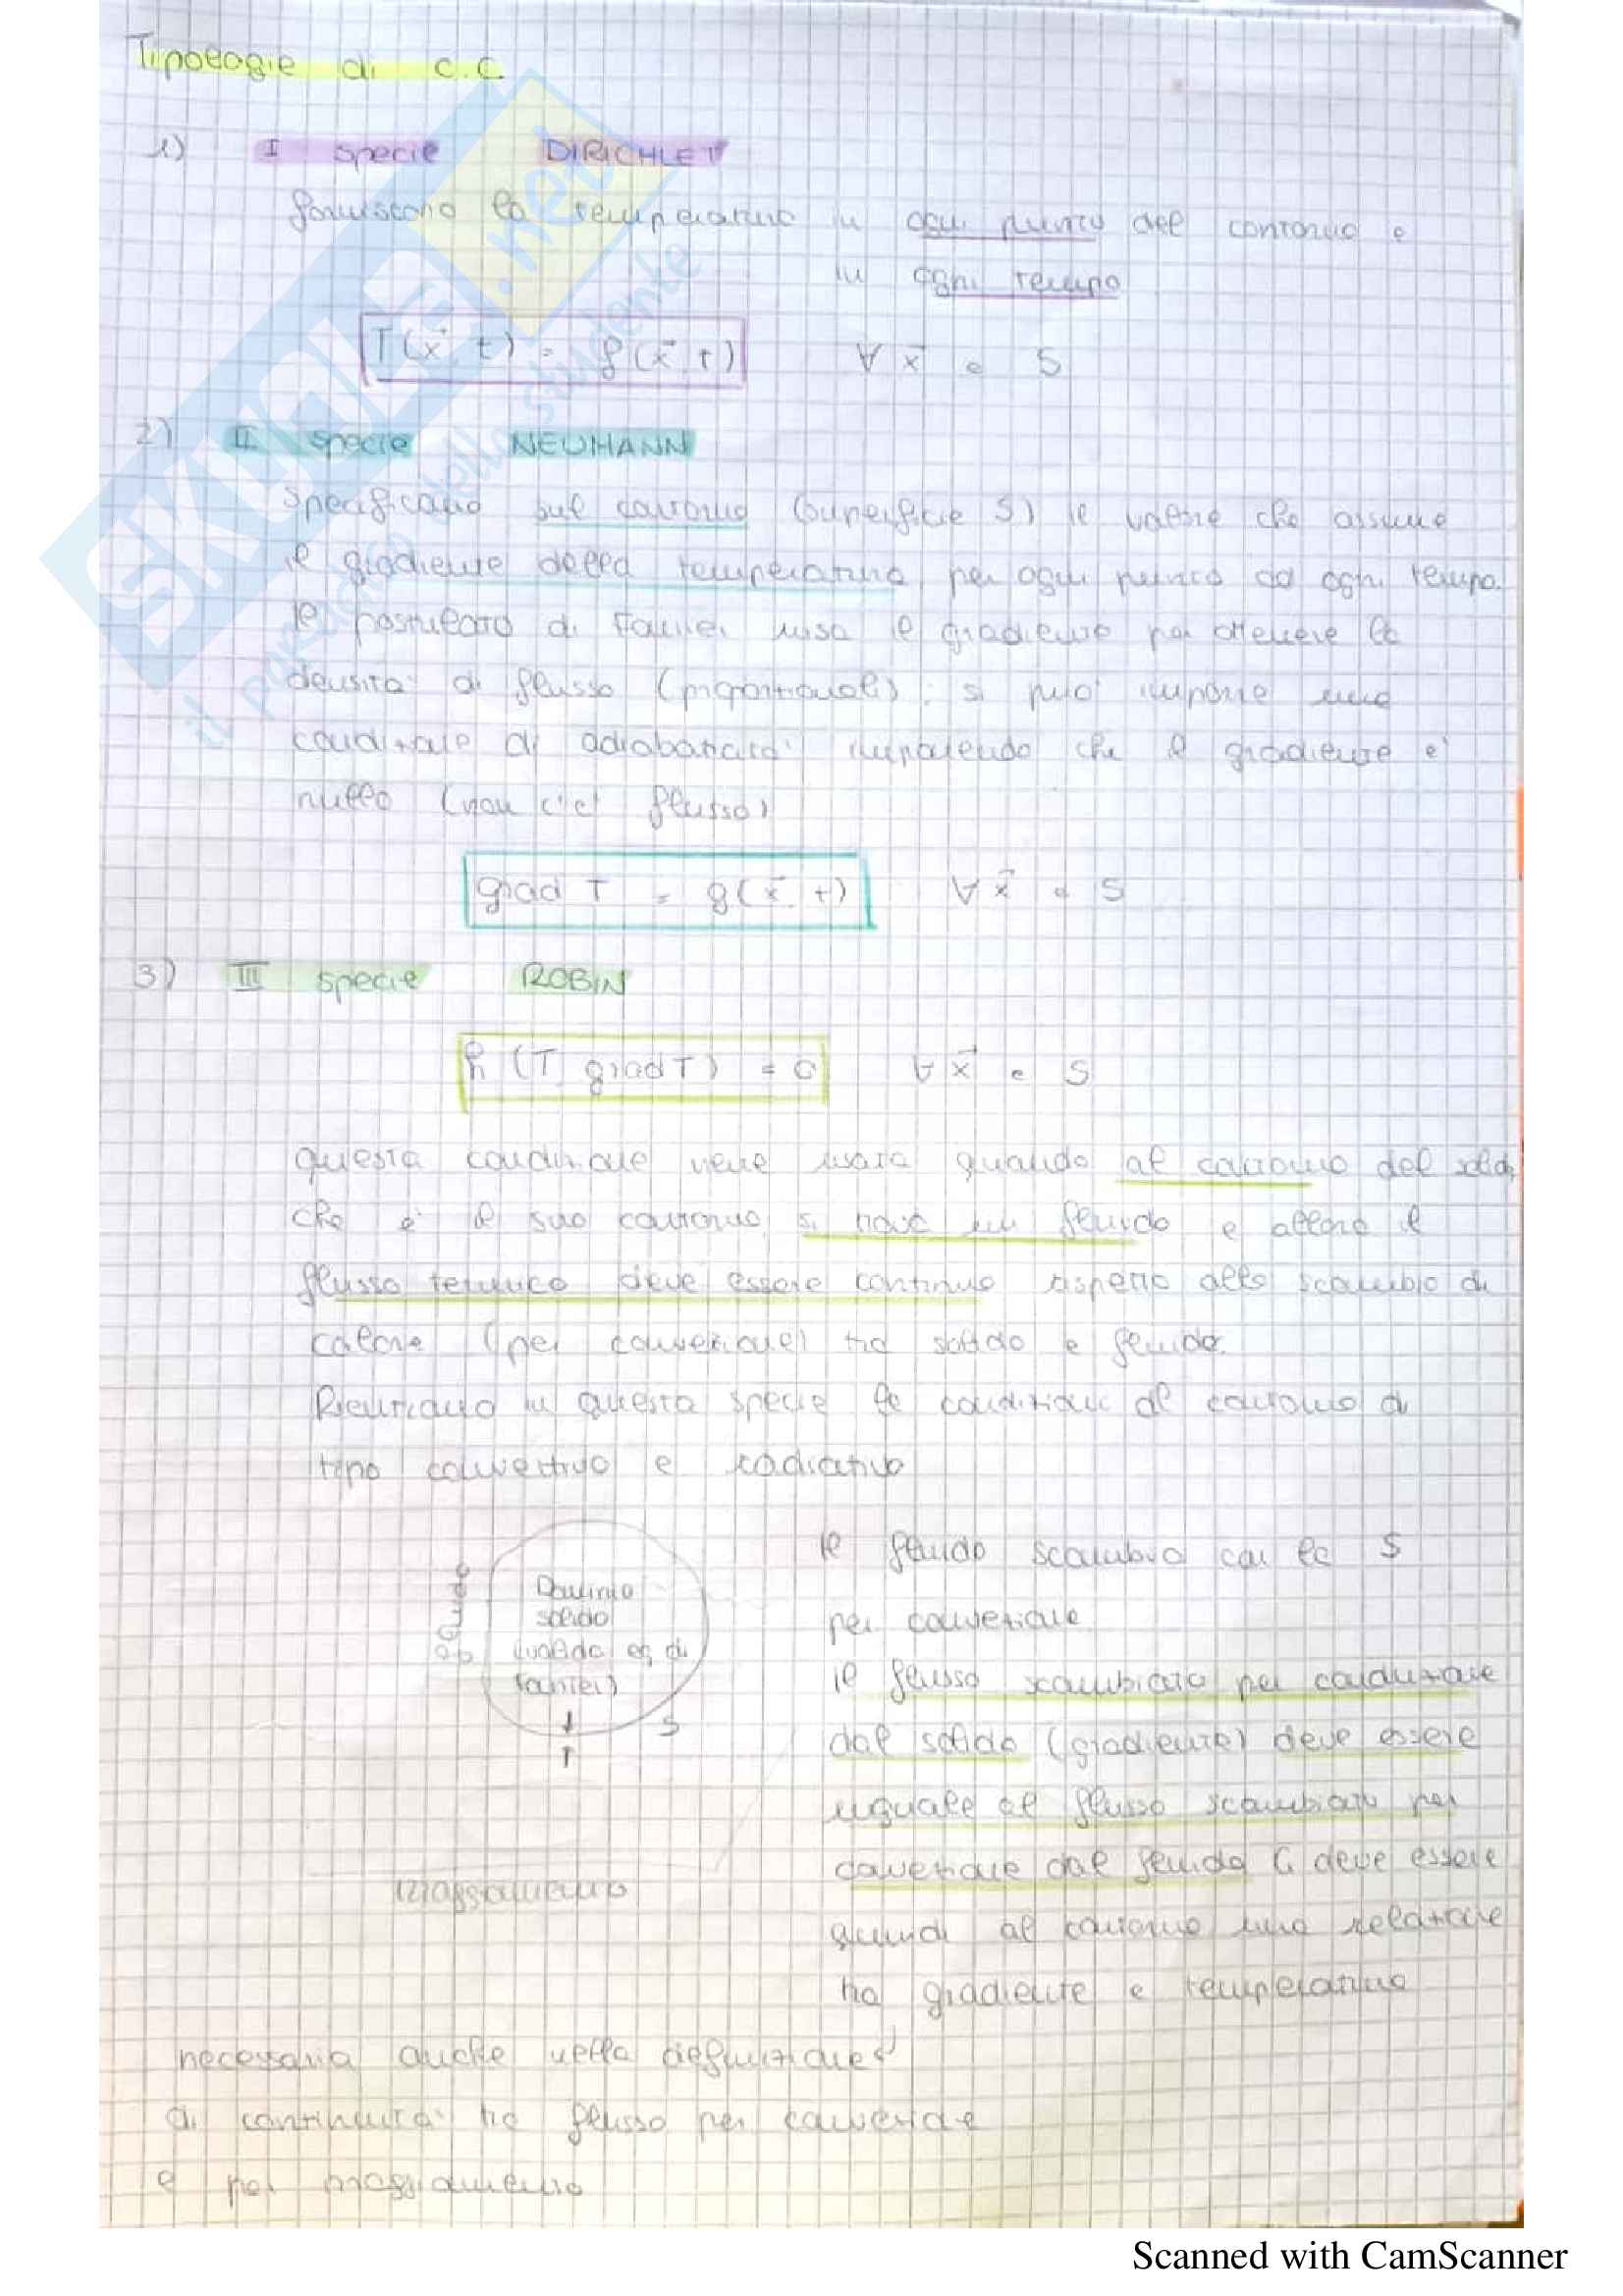 Tipologie di C.C.
1) I specie DIRICHLET
forniscono la temperatura in ogni punto del contorno e
in ogni tempo
T(x⃗, t) = f(x⃗, t) ∀ x⃗ ∈ S
2) II specie NEUMANN
Specificano sul contorno (superficie S) il valore che assume
il gradiente della temperatura per ogni punto ad ogni tempo.
Il postulato di Fourier usa il gradiente per ottenere la
densità di flusso (proporzionali): si può imporre una
condizione di adiabaticità imponendo che il gradiente è
nullo (non c'è flusso)
grad T = g(x⃗, t) ∀ x⃗ ∈ S
3) III specie ROBIN
h (T, grad T) = 0 ∀ x⃗ ∈ S
questa condizione viene usata quando al contorno del solido,
che è il suo contorno, si trova un fluido e allora il
flusso termico deve essere continuo rispetto allo scambio di
calore (per convezione) tra solido e fluido.
Rientrano in questa specie le condizioni al contorno di
tipo convettivo e radiativo
fluido
Dominio
solido
(valido eq. di
Fourier)
S
Il fluido scambia con la S
per convezione
il flusso scambiato per conduzione
dal solido (gradiente) deve essere
uguale al flusso scambiato per
convezione dal fluido. Ci deve essere
quindi al contorno una relazione
tra gradiente e temperatura
irraggiamento
necessaria anche nella definizione
di continuità tra flusso per convezione
e per irraggiamento
SKUOLA.net
il portale dello studente
Scanned with CamScanner